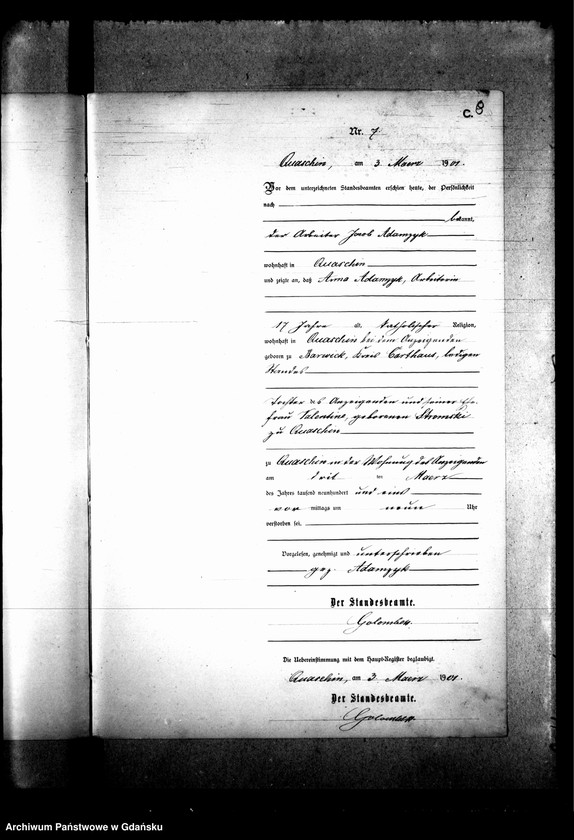 C. 8
Nr. 7
Quaschin, am 3 Maerz 1901.
Vor dem unterzeichneten Standesbeamten erschien heute, der Persönlichkeit
nach
bekannt,
der Arbeiter Jacob Adamzyk
wohnhaft in Quaschin
und zeigte an, daß Anna Adamzyk, Arbeiterin
17 Jahre alt, katholischer Religion,
wohnhaft in Quaschin bei dem Anzeigenden
geboren zu Barwick, Kreis Carthaus, ledigen
Standes
Tochter des Anzeigenden und seiner Ehe-
frau Valentine, geborenen Stromski
zu Quaschin
zu Quaschin in der Wohnung des Anzeigenden
am drit ten Maerz
des Jahres tausend neunhundert und eins
vor mittags um neun Uhr
verstorben sei.
Vorgelesen, genehmigt und unterschrieben
gez. Adamzyk
Der Standesbeamte.
Die Uebereinstimmung mit dem Haupt-Register beglaubigt.
Quaschin, am 3 Maerz 1901.
Der Standesbeamte.
Archiwum Państwowe w Gdańsku